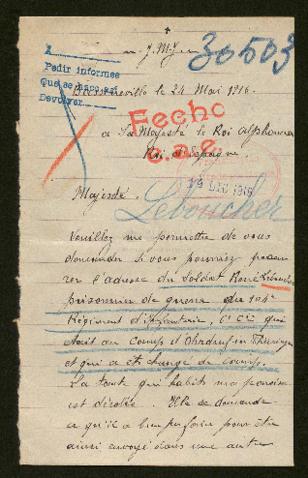 +
J. M. J.
30503
Pedir informes
Que se hizo así
Devolver
le 24 Mai 1916.
Fecho
a Sa Majesté le Roi Alphonse
Roi d'Espagne.
c.a.e.
Majesté.
Leboucher
Veuillez me permettre de vous
demander si vous pourriez procu
rer l'adresse du soldat René Leboucher
prisonnier de guerre du 104e
Régiment d'Infanterie, Cie qui
était au camp d'Ohrdruf en Thuringen
et qui a été changé de camp.
La tante qui habite ma paroisse
est désolée Elle se demande
ce qu'il a bien pu faire pour être
ainsi envoyé dans une autre